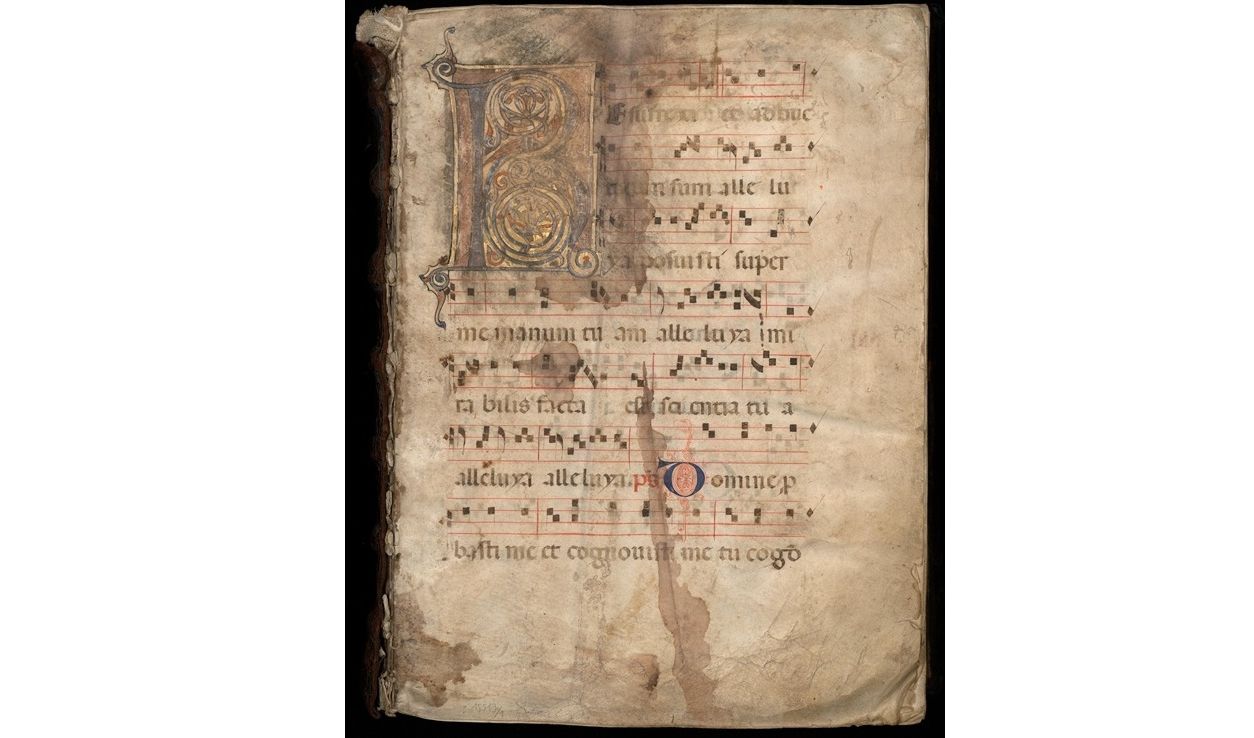 R Esurrexi et adhuc
tecum sum alle lu
ya posuisti super
me manum tu am alleluya mi
ra bilis facta est scientia tu a
alleluya alleluya. ps Domine, p
basti me et cognouisti me tu coḡo